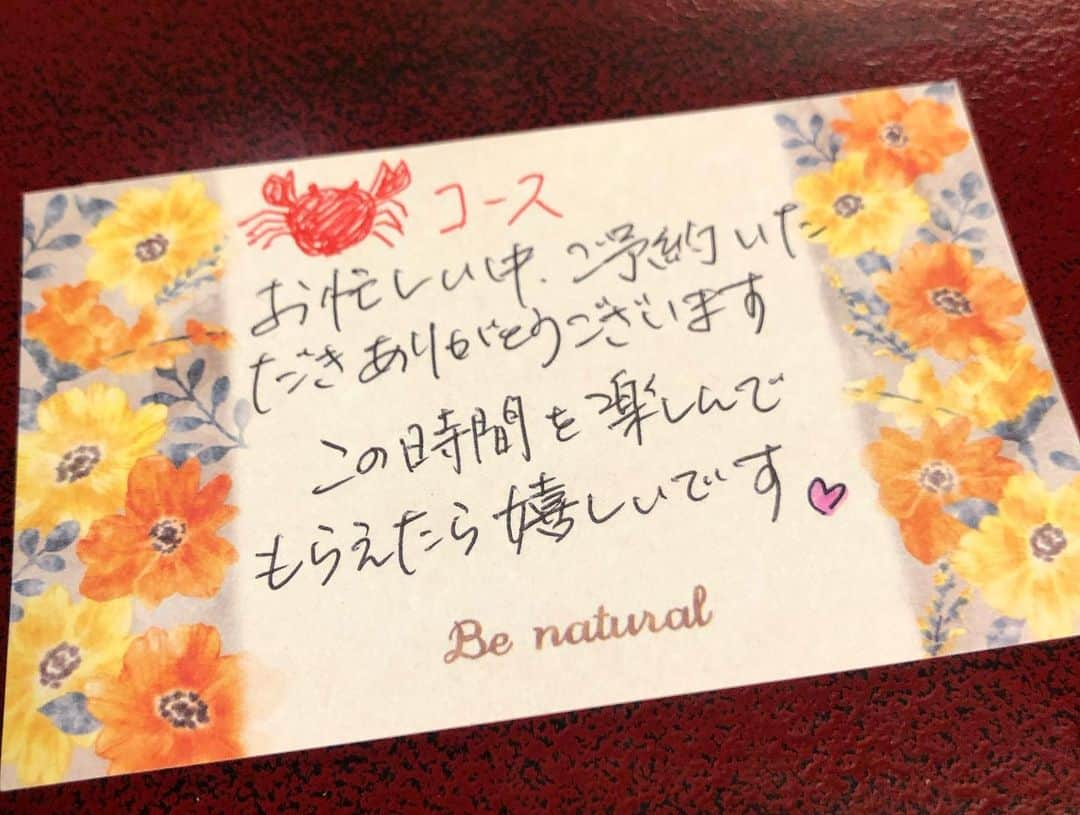 コース
お忙しい中、ご予約いた
だきありがとうございます
この時間を楽しんで
もらえたら嬉しいです
Be natural